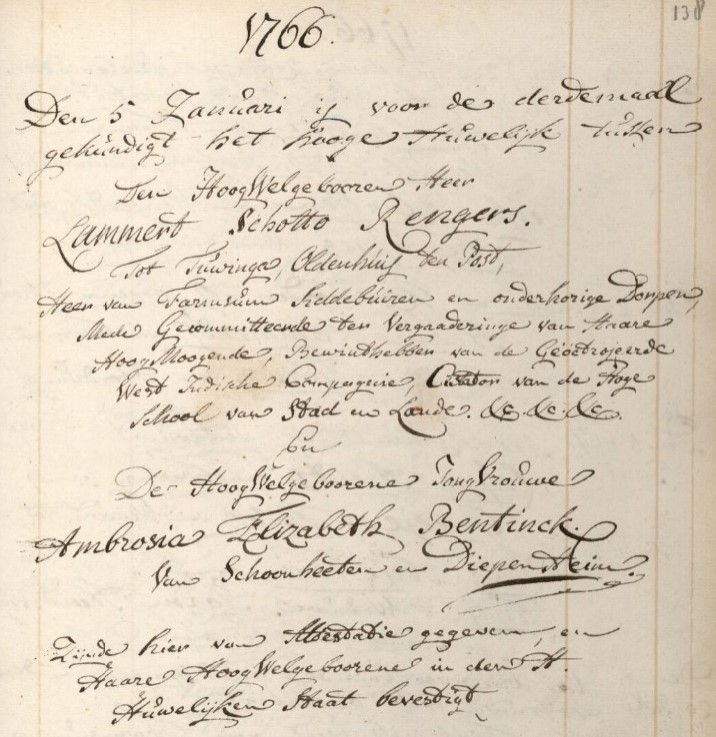 138
1766.
Den 5 Januari is voor de derdemaal
gekündigt het hooge Hüwelijk tüssen
Den HoogWelgebooren Heer
Lammert Schotto Rengers.
Tot Tüwinga, Oldenhüis ten Post,
Heer van Farmsüm Siddebüiren en onderhorige Dorpen,
Mede Gecommitteerde ter Vergaaderinge van Haare
HoogMoogende, Bewinthebber van de Geöctrojeerde
West Indische Compagnie, Cürator van de Hoge
School van Stad en Lande. &c. &c. &c.
En
De HoogWelgeboorene JongVroüwe
Ambrosia Elizabeth Bentinck.
Van Schoonheeten en DiepenHeim.
Zijnde hier van Attestatie gegeven, en
Haare HoogWelgeboorene in den H.
Hüwelijken Staat bevestigt